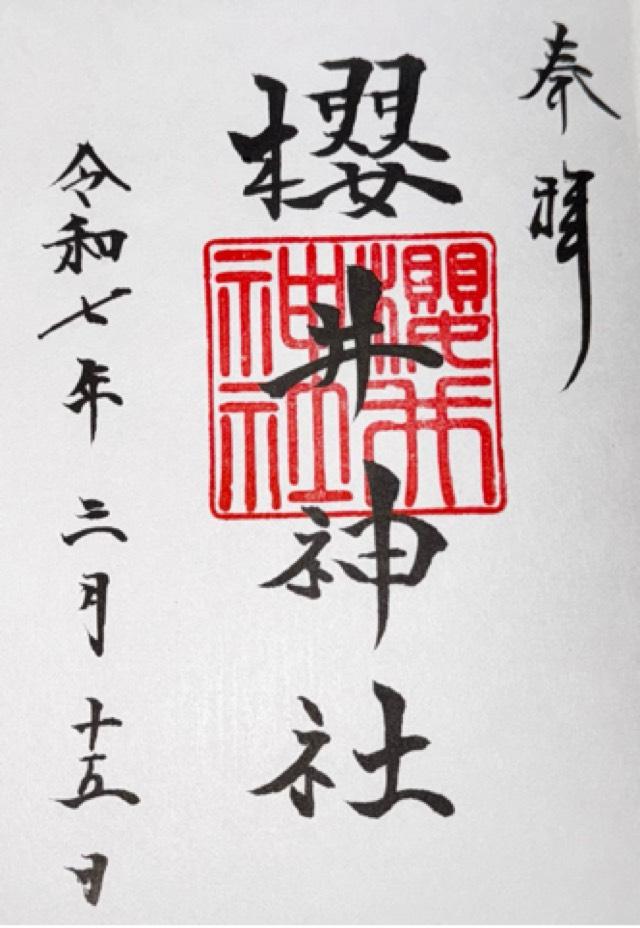 奉拝
櫻井神社
櫻井神社
令和七年三月十五日